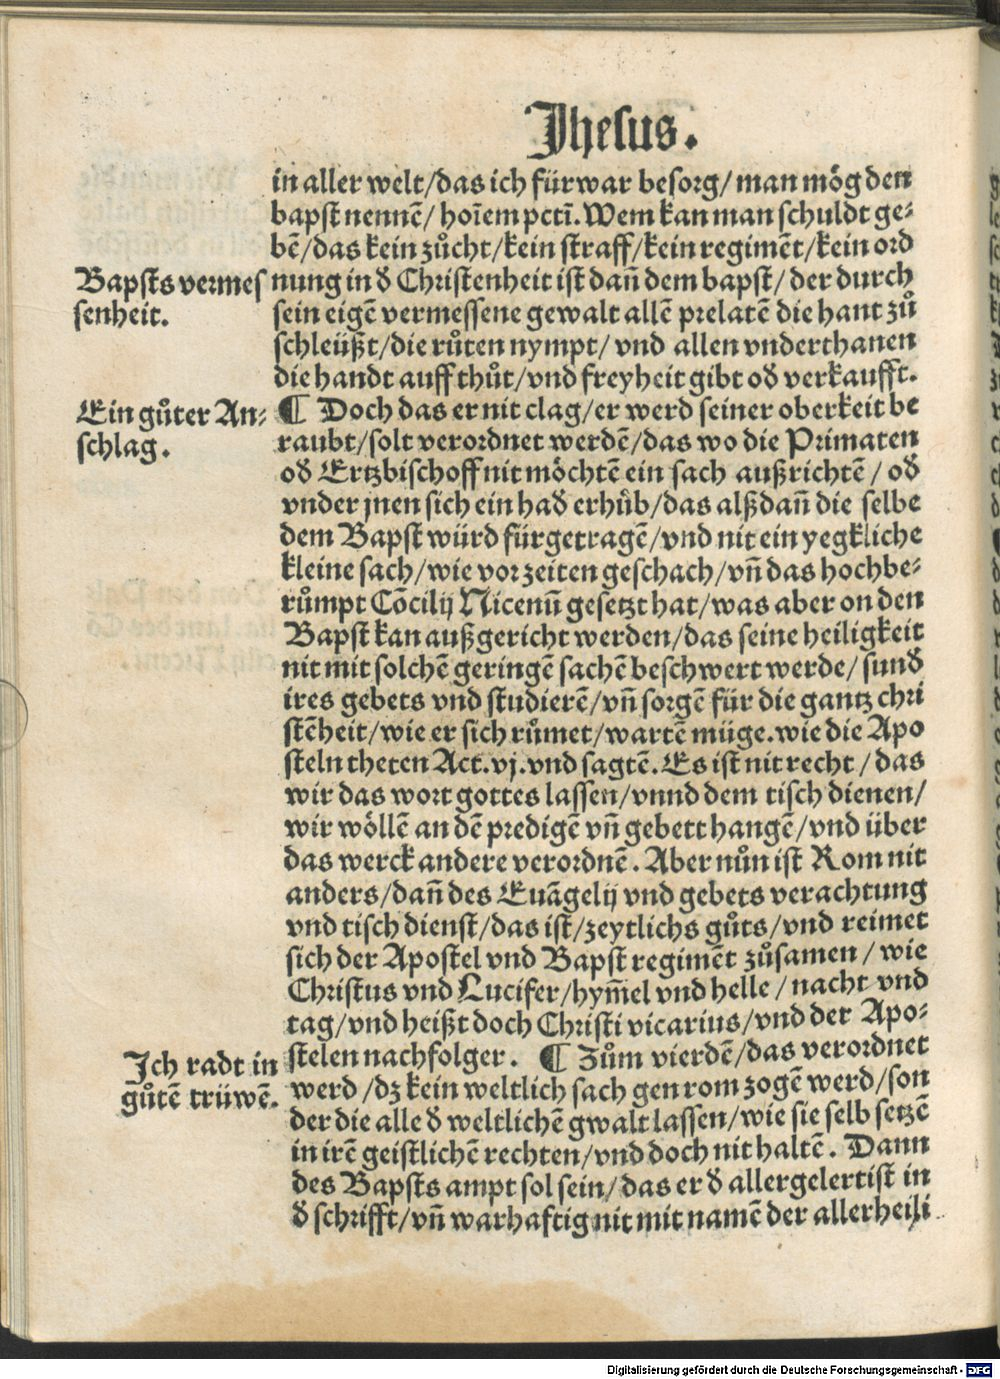 Jhesus.
in aller welt/das ich fürwar besorg/ man mög den
bapst nennē/ hoīem pctī. Wem kan man schuldt ge⸗
bē/das kein zůcht/kein straff/kein regimēt/kein ord
Bapsts vermes
senheit.
nung in d̕ Christenheit ist dañ dem bapst/ der durch
sein eigē vermessene gewalt allē prelatē die hant zů
schleüßt/die růten nympt/ vnd allen vnderthanen
die handt auff thůt/vnd freyheit gibt od̕ verkaufft.
Ein gůter An⸗
schlag.
¶ Doch das er nit clag/er werd seiner oberkeit be
raubt/solt verordnet werdē/das wo die Primaten
od̕ Ertzbischoff nit möchtē ein sach außrichtē/ od̕
vnder jnen sich ein had̕ erhůb/das alßdañ die selbe
dem Bapst würd fürgetragē/vnd nit ein yegkliche
kleine sach/wie vor zeiten geschach/vñ das hochbe⸗
růmpt Cōcilij Nicenū gesetzt hat/was aber on den
Bapst kan außgericht werden/das seine heiligkeit
nit mit solchē geringē sachē beschwert werde/ sund̕
ires gebets vnd studierē/vñ sorgē für die gantz chri
stēheit/wie er sich růmet/wartē müge. wie die Apo
steln theten Act. vj. vnd sagtē. Es ist nit recht/ das
wir das wort gottes lassen/vnnd dem tisch dienen/
wir wöllē an dē predigē vñ gebett hangē/vnd über
das werck andere verordnē. Aber nůn ist Rom nit
anders/dañ des Euāgelij vnd gebets verachtung
vnd tisch dienst/das ist/zeytlichs gůts/vnd reimet
sich der Apostel vnd Bapst regimēt zůsamen/ wie
Christus vnd Lucifer/hym̄el vnd helle/ nacht vnd
tag/vnd heißt doch Christi vicarius/vnd der Apo⸗
stelen nachfolger. ¶ Zům vierdē/das verordnet
Ich radt in
gůtē trüwē.
werd/dz kein weltlich sach gen rom zogē werd/son
der die alle d̕ weltlichē gwalt lassen/wie sie selb setzē
in irē geistlichē rechten/vnd doch nit haltē. Dann
des Bapsts ampt sol sein/das er d̕ allergelertist in
d̕ schrifft/vñ warhaftig nit mit namē der allerheili
Digitalisierung gefördert durch die Deutsche Forschungsgemeinschaft - DFG